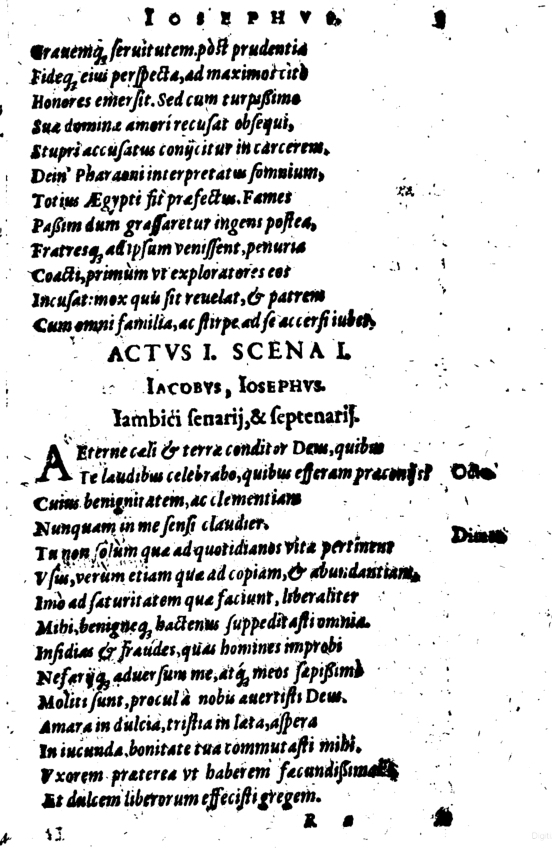 IOSEPHVS.
Grauemq; seruitutem.pòst prudentia
Fideq; eius perspecta,ad maximos citò
Honores emersit. Sed cum turpissimo
Suæ dominæ amori recusat obsequi,
Stupri accusatus conijcitur in carcerem.
Dein' Pharaoni interpretatus somnium,
Totius Ægypti fit præfectus. Fames
Passim dum grassaretur ingens postea,
Fratresq; ad ipsum venissent, penuria
Coacti,primùm vt exploratores eos
Incusat:mox quis sit reuelat,& patrem
Cum omni familia,ac stirpe ad se accersi iubet.
ACTVS I. SCENA I.
IACOBVS, IOSEPHVS.
Iambici senarij,& septenarij.
AEterne cæli & terræ conditor Deus,quibus
Te laudibus celebrabo,quibus efferam præconijs?
Cuius benignitatem,ac clementiam
Nunquam in me sensi claudier.
Tu non solum quæ ad quotidianos vitæ pertinent
Vsus,verum etiam quæ ad copiam,& abundantiam,
Imò ad saturitatem quæ faciunt, liberaliter
Mihi,benigneq; hactenus suppeditasti omnia.
Insidias & fraudes,quas homines improbi
Nefarijq; aduersum me,atq; meos sæpissimè
Moliti sunt,procul à nobis auertisti Deus.
Amara in dulcia,tristia in læta,aspera
In iucunda,bonitate tua commutasti mihi.
Vxorem præterea vt haberem fæcundissimam
Et dulcem liberorum effecisti gregem.
R